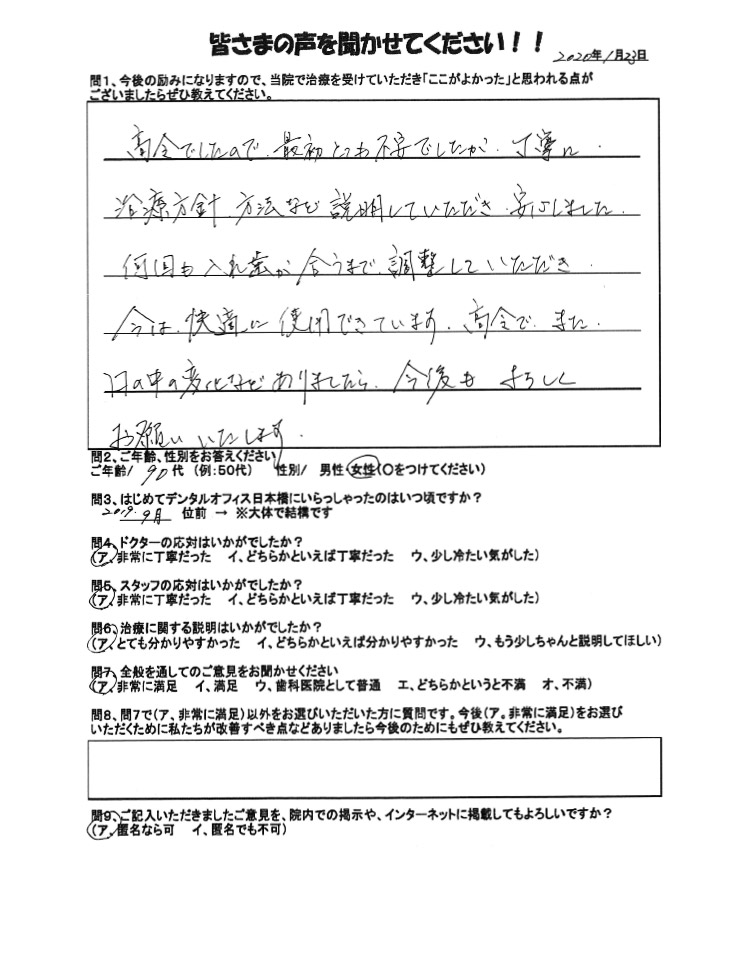 皆さまの声を聞かせてください！！
2020年1月23日
問1、今後の励みになりますので、当院で治療を受けていただき「ここがよかった」と思われる点が
ございましたらぜひ教えてください。
高令でしたので、最初とても不安でしたが、丁寧に
治療方針、方法など説明していただき、安心しました。
何回も入れ歯が合うまで、調整していただき
今は、快適に使用できています。高令で、また、
口の中の変化などありましたら、今後もよろしく
お願いいたします。
問2、ご年齢、性別をお答えください
ご年齢/ 90代 (例:50代) 性別/ 男性 女性(○をつけてください)
問3、はじめてデンタルオフィス日本橋にいらっしゃったのはいつ頃ですか？
2019. 9月 位前 → ※大体で結構です
問4、ドクターの応対はいかがでしたか？
(ア、非常に丁寧だった イ、どちらかといえば丁寧だった ウ、少し冷たい気がした)
問5、スタッフの応対はいかがでしたか？
(ア、非常に丁寧だった イ、どちらかといえば丁寧だった ウ、少し冷たい気がした)
問6、治療に関する説明はいかがでしたか？
(ア、とても分かりやすかった イ、どちらかといえば分かりやすかった ウ、もう少しちゃんと説明してほしい)
問7、全般を通してのご意見をお聞かせください
(ア、非常に満足 イ、満足 ウ、歯科医院として普通 エ、どちらかというと不満 オ、不満)
問8、問7で(ア、非常に満足)以外をお選びいただいた方に質問です。今後(ア。非常に満足)をお選び
いただくために私たちが改善すべき点などありましたら今後のためにもぜひ教えてください。
問9、ご記入いただきましたご意見を、院内での掲示や、インターネットに掲載してもよろしいですか？
(ア、匿名なら可 イ、匿名でも不可)